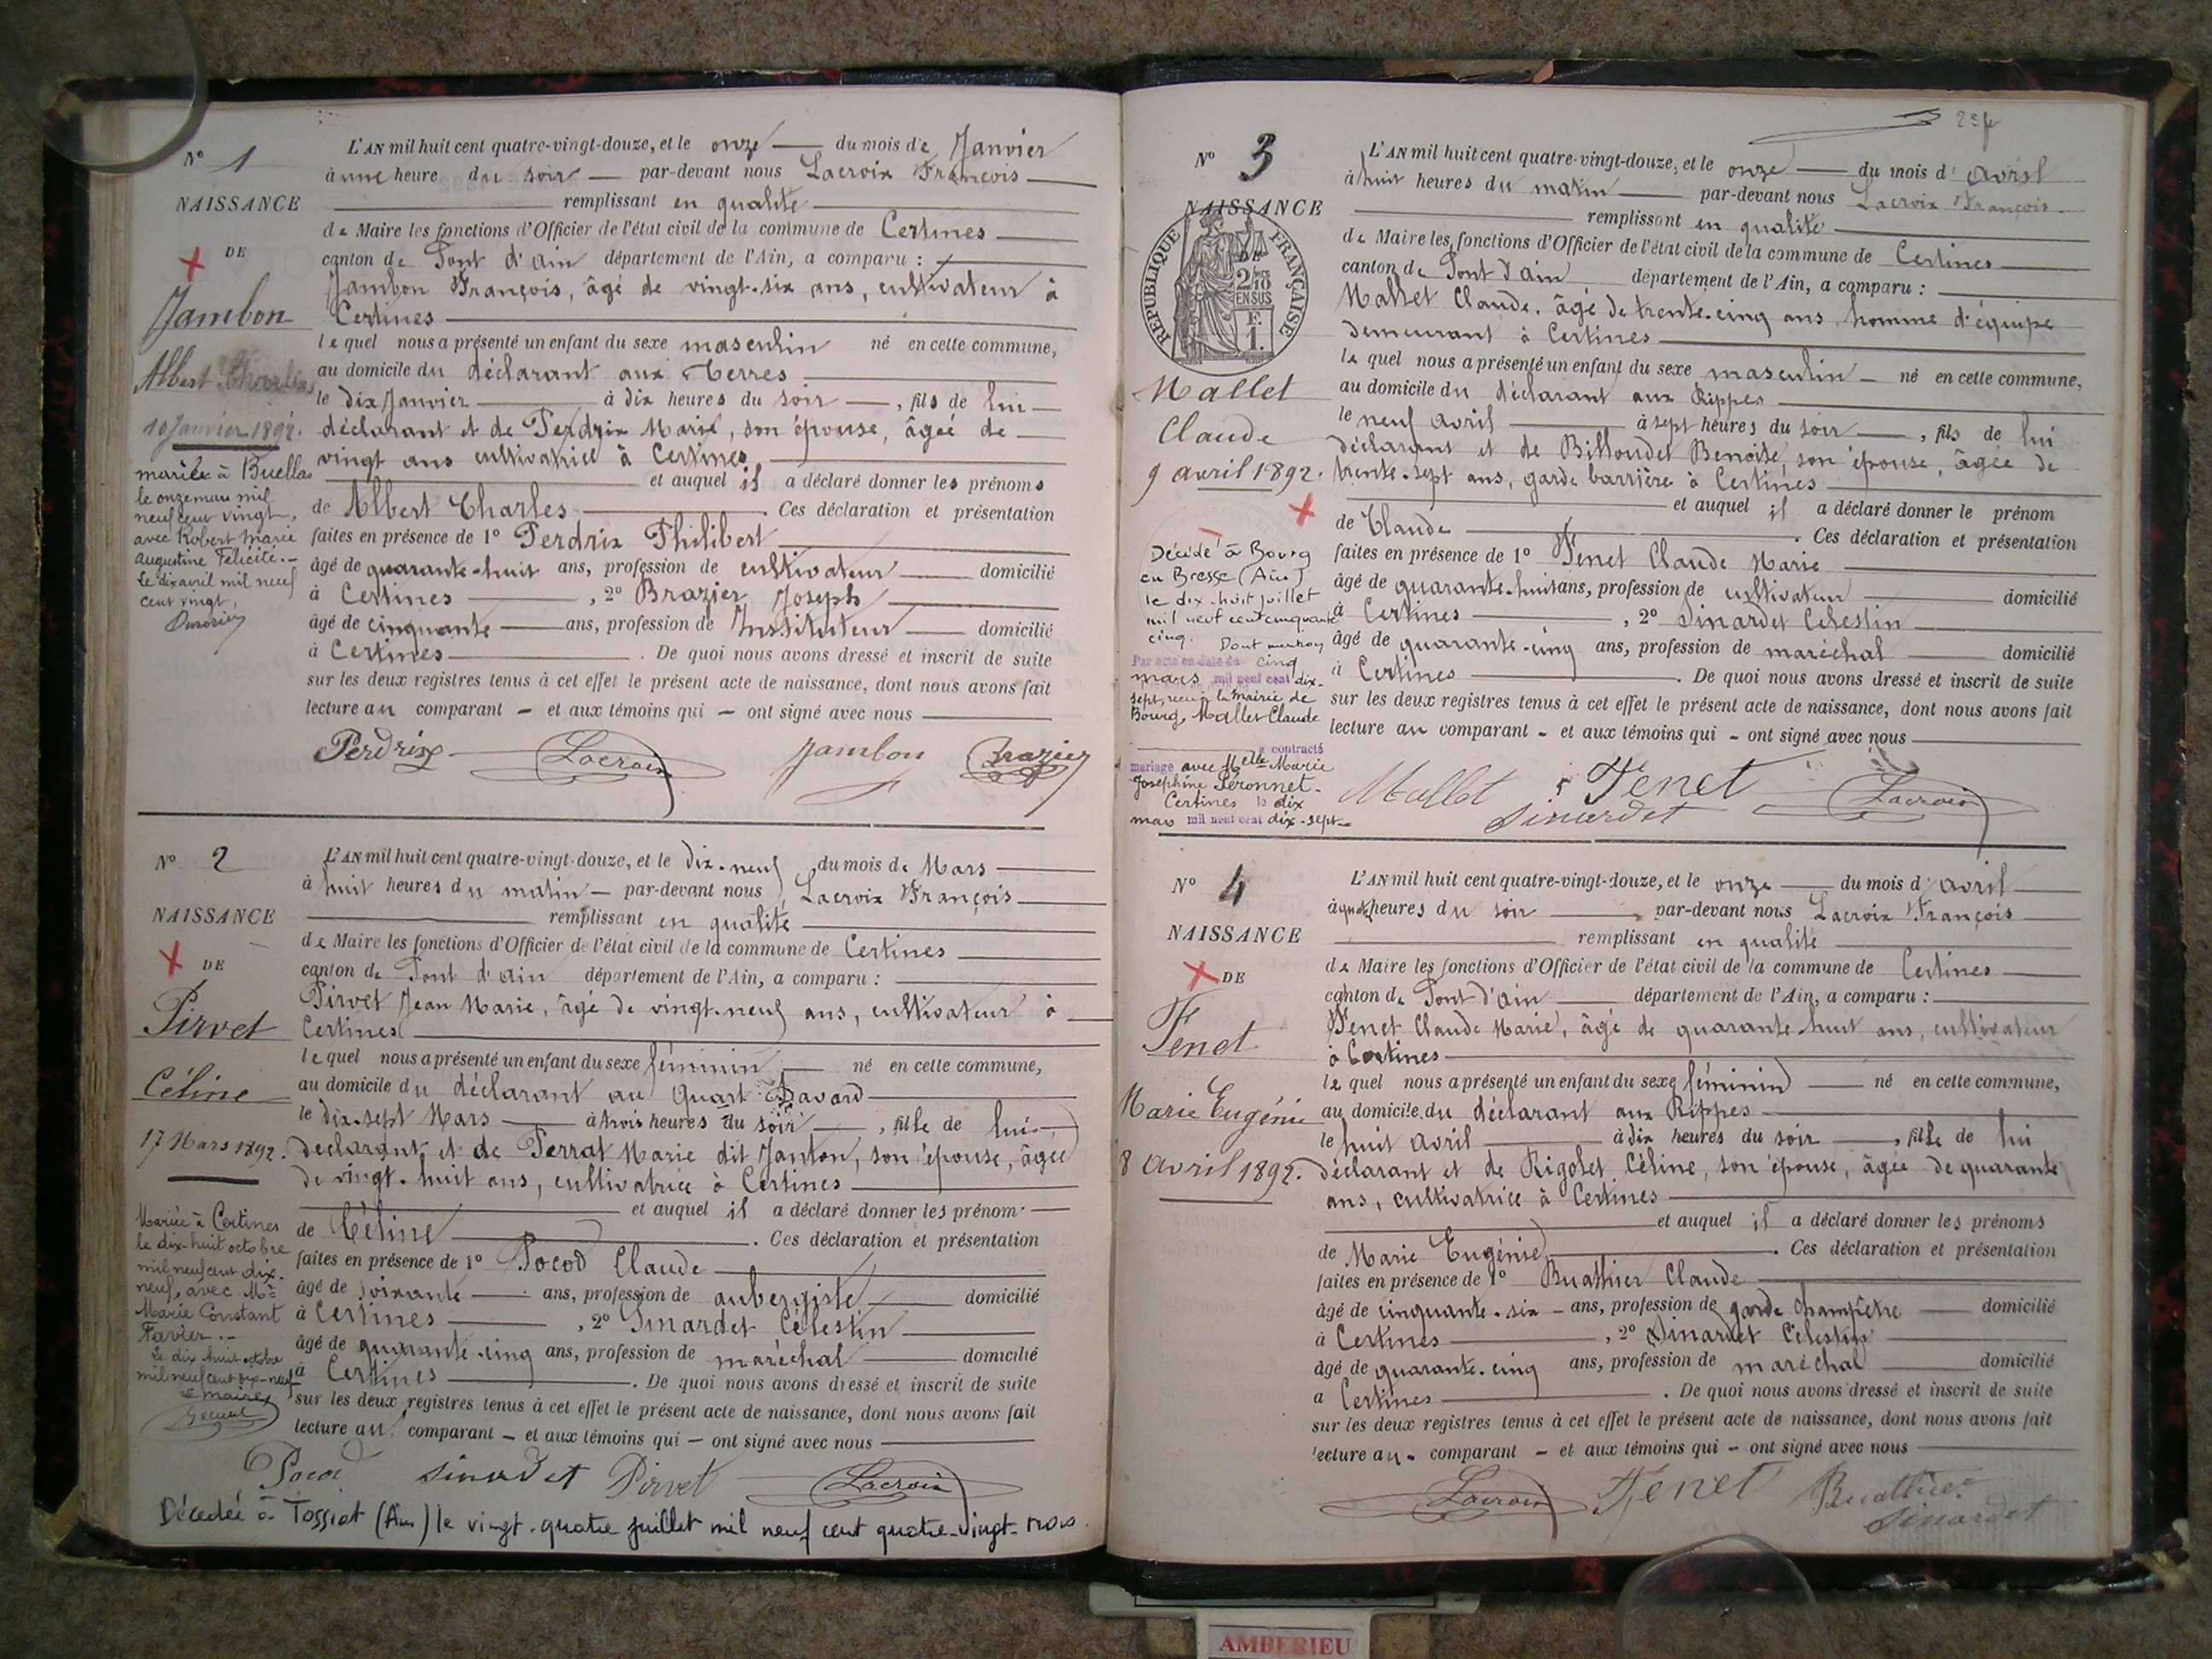 N° 1
NAISSANCE
DE
Jambon
Albert Charles
10 Janvier 1892.
mariée à Buellas
le onze mars mil
neuf cent vingt,
avec Robert Marie
Augustine Félicité. -
Le dix avril mil neuf
cent vingt,
L'AN mil huit cent quatre-vingt-douze, et le onze du mois de Janvier
à une heure du soir par-devant nous Lacroix François
remplissant en qualité
de Maire les fonctions d'Officier de l'état civil de la commune de Certines
canton de Pont d'ain département de l'Ain, a comparu :
Jambon François, âgé de vingt-six ans, cultivateur à
Certines
lequel nous a présenté un enfant du sexe masculin né en cette commune,
au domicile du déclarant aux Terres
le dix Janvier à dix heures du soir, fils de lui
déclarant et de Perdrix Marie, son épouse, âgée de
vingt ans cultivatrice à Certines
et auquel il a déclaré donner les prénoms
de Albert Charles. Ces déclaration et présentation
faites en présence de 1° Perdrix Philibert
âgé de quarante-huit ans, profession de cultivateur domicilié
à Certines, 2° Brazier Joseph
âgé de cinquante ans, profession de Instituteur domicilié
à Certines. De quoi nous avons dressé et inscrit de suite
sur les deux registres tenus à cet effet le présent acte de naissance, dont nous avons fait
lecture au comparant - et aux témoins qui - ont signé avec nous
Perdrix Lacroix Jambon Brazier
N° 2
NAISSANCE
DE
Pirvet
Céline
17 Mars 1892.
Mariée à Certines
le dix-huit octobre
mil neuf cent dix-
neuf, avec Mr
Marie Constant
Favier. -
Le dix huit octobre
mil neuf cent dix-neuf
Le maire,
L'AN mil huit cent quatre-vingt-douze, et le dix-neuf du mois de Mars
à huit heures du matin par-devant nous Lacroix François
remplissant en qualité
de Maire les fonctions d'Officier de l'état civil de la commune de Certines
canton de Pont d'ain département de l'Ain, a comparu :
Pirvet Jean Marie, âgé de vingt-neuf ans, cultivateur à
Certines
lequel nous a présenté un enfant du sexe féminin né en cette commune,
au domicile du déclarant au Quart Bavard
le dix-sept Mars à trois heures du soir, fille de lui
déclarant et de Perrat Marie dit Janton, son épouse, âgée
de vingt-huit ans, cultivatrice à Certines
et auquel il a déclaré donner les prénom
de Céline. Ces déclaration et présentation
faites en présence de 1° Pocod Claude
âgé de soixante ans, profession de aubergiste domicilié
à Certines, 2° Sinardet Célestin
âgé de quarante-cinq ans, profession de maréchal domicilié
à Certines. De quoi nous avons dressé et inscrit de suite
sur les deux registres tenus à cet effet le présent acte de naissance, dont nous avons fait
lecture au comparant - et aux témoins qui - ont signé avec nous
Pocod Sinardet Pirvet Lacroix
Décédée à Tossiat (Ain) le vingt-quatre juillet mil neuf cent quatre-vingt-trois.
N° 3
NAISSANCE
DE
REPUBLIQUE FRANÇAISE
2/10 EN SUS
F. 1.
Mallet
Claude
9 avril 1892.
Décédé à Bourg
en Bresse (Ain)
le dix-huit juillet
mil neuf cent cinquante
cinq. Dont mention
Par acte en date du cinq
mars mil neuf cent dix-
sept, reçu à la mairie de
Bourg, Mallet Claude
a contracté
mariage avec Melle Marie
Joséphine Péronnet.
Certines le dix
mars mil neuf cent dix-sept
L'AN mil huit cent quatre-vingt-douze, et le onze du mois d'avril
à huit heures du matin par-devant nous Lacroix François
remplissant en qualité
de Maire les fonctions d'Officier de l'état civil de la commune de Certines
canton de Pont d'ain département de l'Ain, a comparu :
Mallet Claude, âgé de trente-cinq ans, homme d'équipe
demeurant à Certines
lequel nous a présenté un enfant du sexe masculin né en cette commune,
au domicile du déclarant aux Rippes
le neuf avril à sept heures du soir, fils de lui
déclarant et de Billoudet Benoite, son épouse, âgée de
trente-sept ans, garde barrière à Certines
et auquel il a déclaré donner le prénom
de Claude. Ces déclaration et présentation
faites en présence de 1° Fenet Claude Marie
âgé de quarante-huit ans, profession de cultivateur domicilié
à Certines, 2° Sinardet Célestin
âgé de quarante-cinq ans, profession de maréchal domicilié
à Certines. De quoi nous avons dressé et inscrit de suite
sur les deux registres tenus à cet effet le présent acte de naissance, dont nous avons fait
lecture au comparant - et aux témoins qui - ont signé avec nous
Mallet Fenet Lacroix
Sinardet
N° 4
NAISSANCE
DE
Fenet
Marie Eugénie
8 avril 1892.
L'AN mil huit cent quatre-vingt-douze, et le onze du mois d'avril
à quatre heures du soir par-devant nous Lacroix François
remplissant en qualité
de Maire les fonctions d'Officier de l'état civil de la commune de Certines
canton de Pont d'ain département de l'Ain, a comparu :
Fenet Claude Marie, âgé de quarante-huit ans, cultivateur
à Certines
lequel nous a présenté un enfant du sexe féminin né en cette commune,
au domicile du déclarant aux Rippes
le huit avril à dix heures du soir, fille de lui
déclarant et de Rigolet Céline, son épouse, âgée de quarante
ans, cultivatrice à Certines
et auquel il a déclaré donner les prénoms
de Marie Eugénie. Ces déclaration et présentation
faites en présence de 1° Buathier Claude
âgé de cinquante-six ans, profession de garde champêtre domicilié
à Certines, 2° Sinardet Célestin
âgé de quarante-cinq ans, profession de maréchal domicilié
à Certines. De quoi nous avons dressé et inscrit de suite
sur les deux registres tenus à cet effet le présent acte de naissance, dont nous avons fait
lecture au comparant - et aux témoins qui - ont signé avec nous
Lacroix Fenet Buathier
Sinardet
AMBERIEU